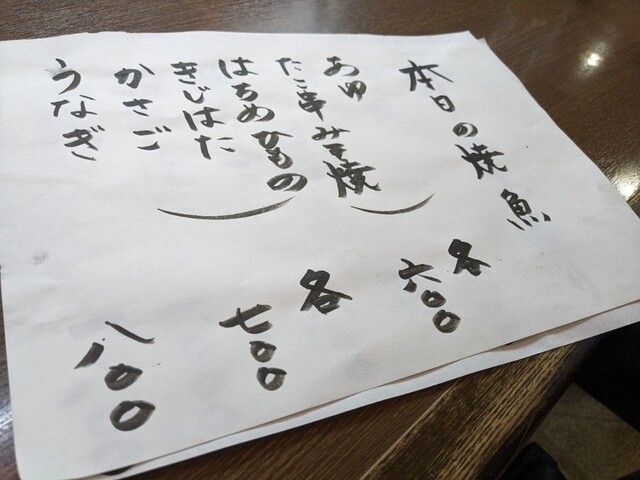 本日の焼魚
あゆ
たこ串みそ焼
各六〇〇
はちめ
きじはた
かさご
各七〇〇
うなぎ
八〇〇